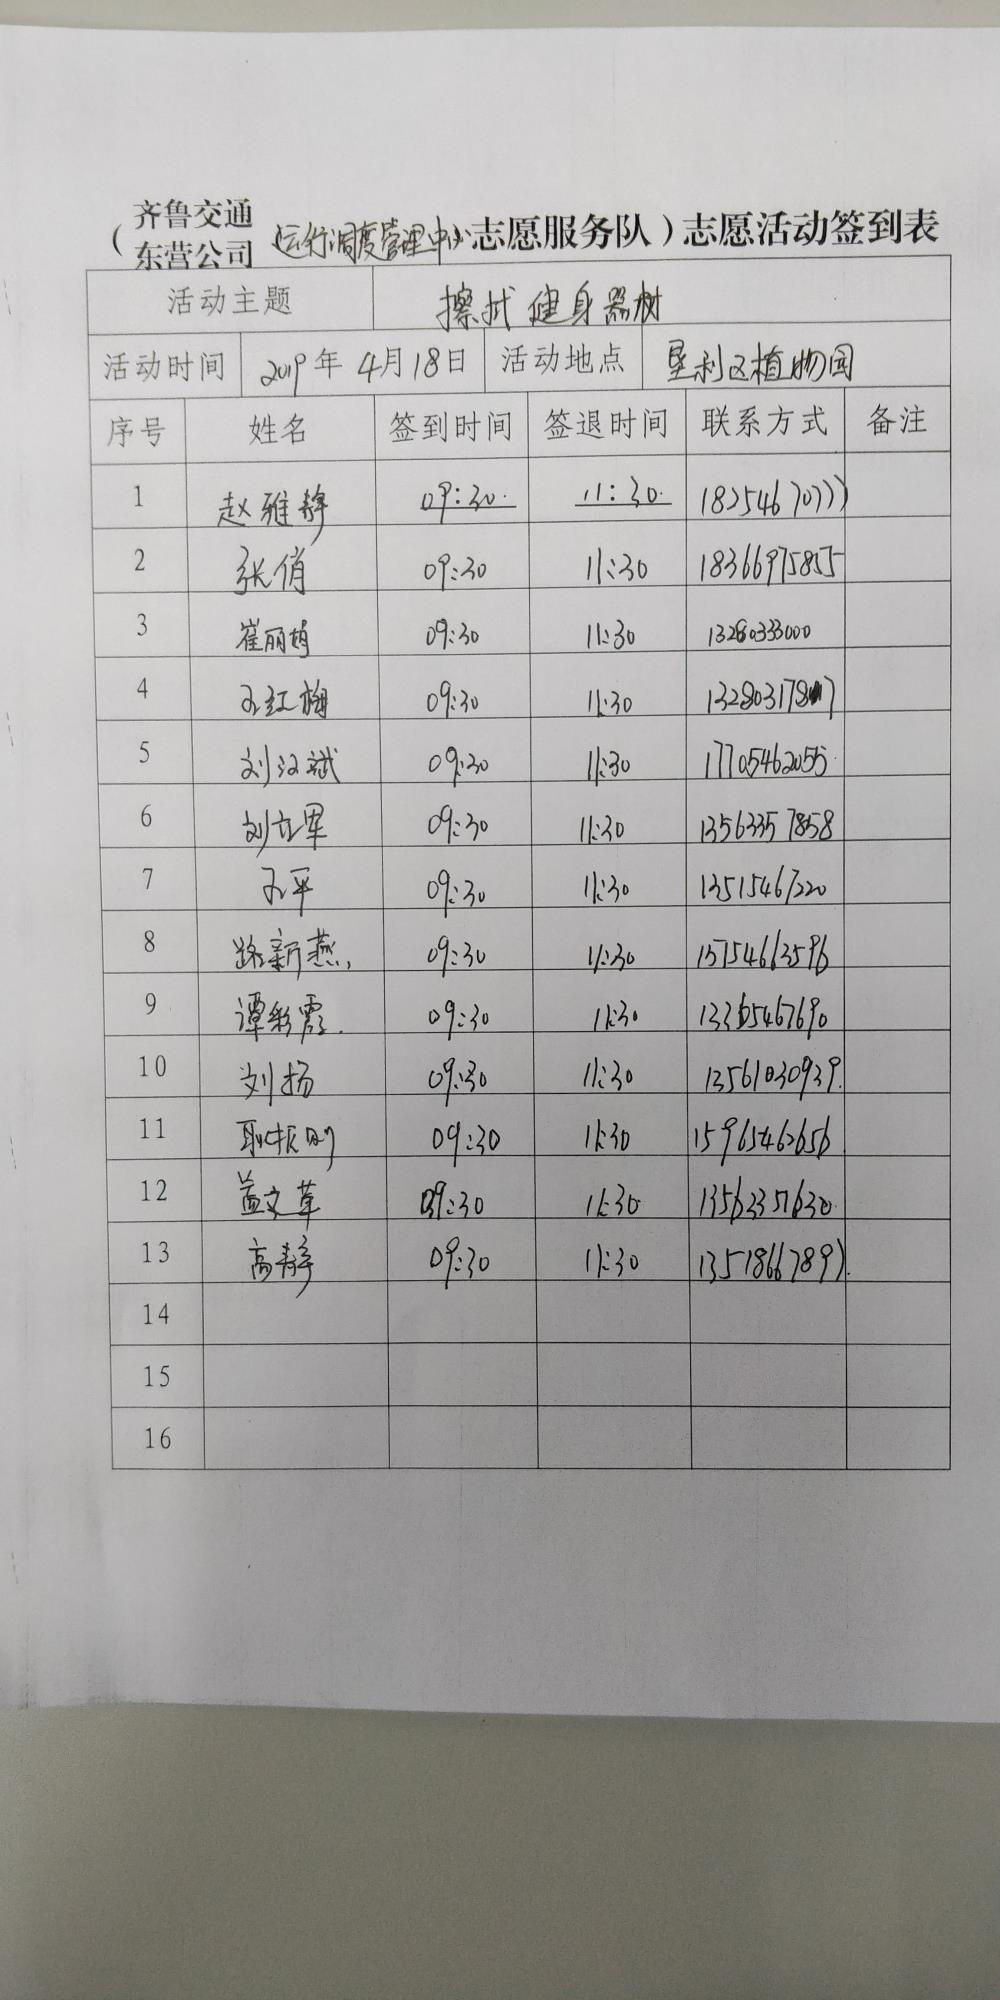 （齐鲁交通东营公司 运行调度管理中心 志愿服务队）志愿活动签到表
活动主题 擦拭健身器材
活动时间 2019年4月18日 活动地点 垦利区植物园
序号 姓名 签到时间 签退时间 联系方式 备注
1 赵雅静 09:30 11:30 18254670777
2 张俏 09:30 11:30 18366975855
3 崔丽 09:30 11:30 13280333000
4 红梅 09:30 11:30
5 刘汉斌 09:30 11:30 17705462055
6 刘立军 09:30 11:30 13563357858
7 平 09:30 11:30 13515467220
8 路新燕 09:30 11:30 15754663596
9 谭彩霞 09:30 11:30 13365467690
10 刘扬 09:30 11:30 13561030939
11 耿振 09:30 11:30 15965462656
12 盖文革 09:30 11:30 13563357630
13 高静 09:30 11:30 13518667897
14
15
16